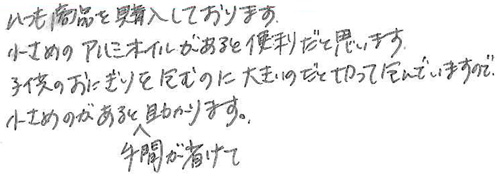 いつも商品を購入しております。
小さめのアルミホイルがあると便利だと思います。
子供のおにぎりを包むのに大きいのだと切って包んでいますので、
小さめのがあると助かります。
手間が省けて